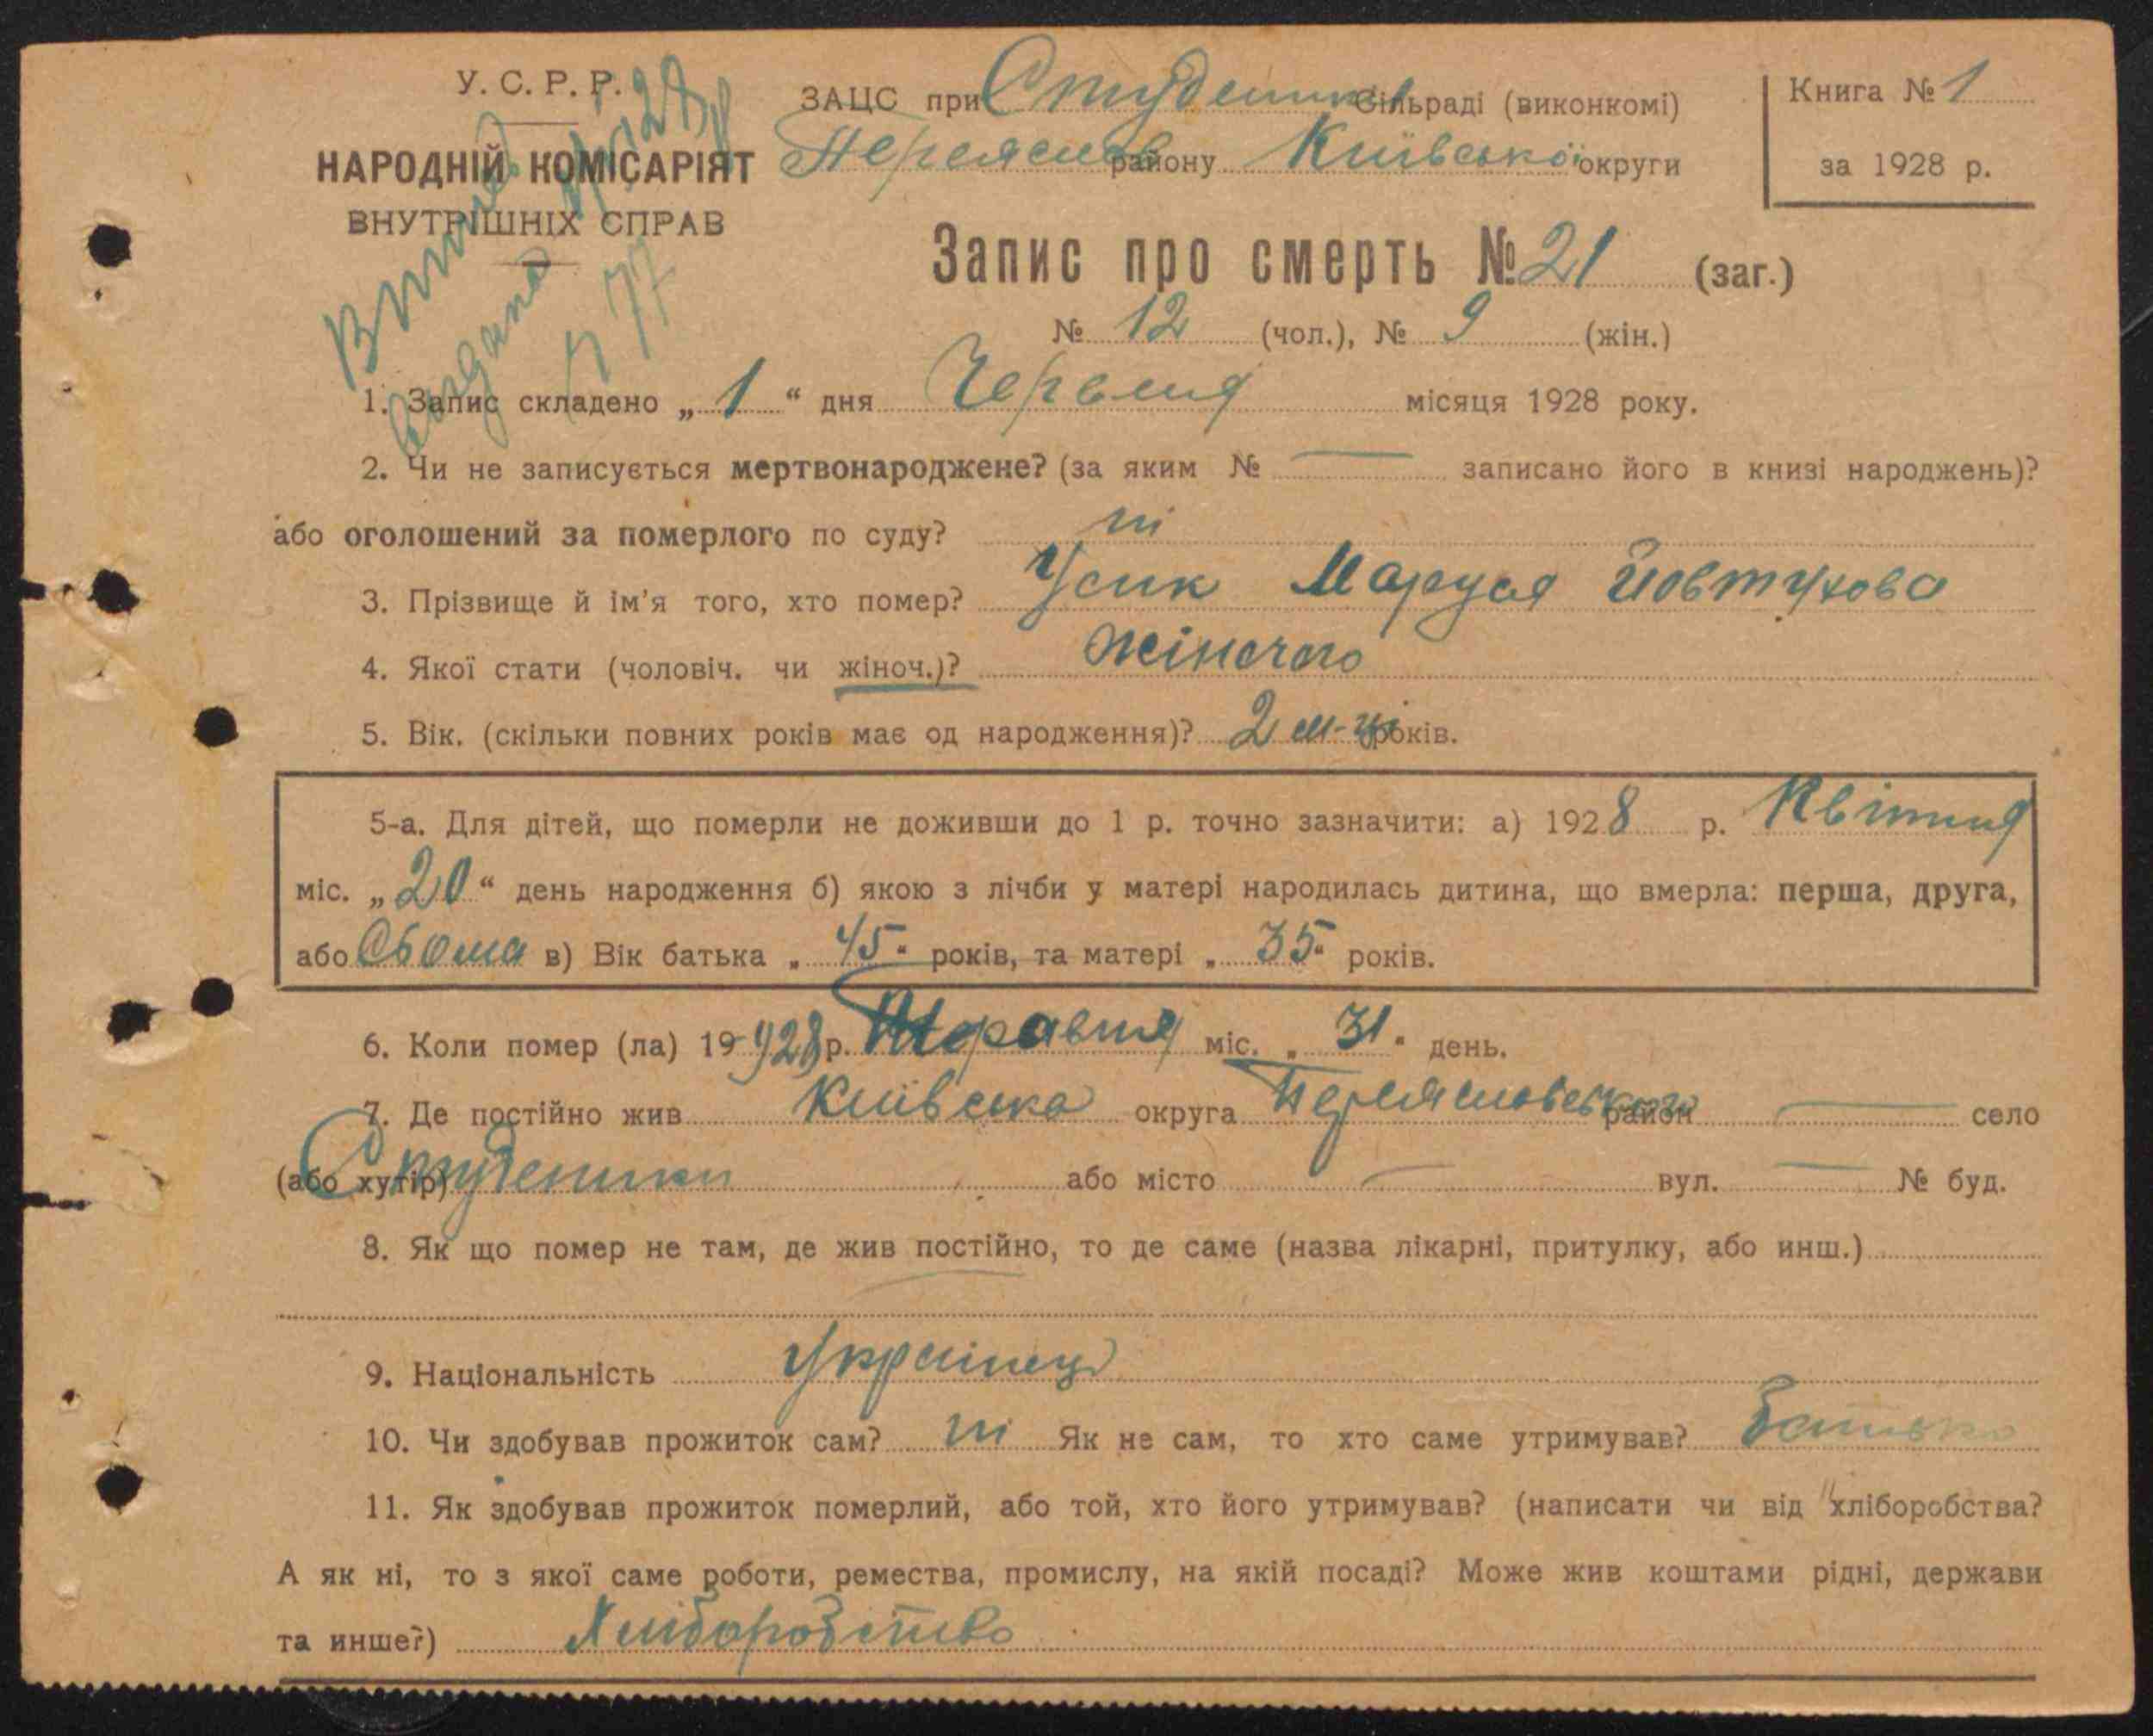 У. С. Р. Р.
НАРОДНІЙ КОМІСАРІЯТ
ВНУТРІШНІХ СПРАВ
Витяг
видано
№ 77
ЗАЦС при Студеник Сільраді (виконкомі)
Переяслав району Київської округи
Книга № 1
за 1928 р.
Запис про смерть № 21 (заг.)
№ 12 (чол.), № 9 (жін.)
1. Запис складено „ 1 “ дня Червня місяця 1928 року.
2. Чи не записується мертвонароджене? (за яким № — записано його в книзі народжень)?
або оголошений за померлого по суду? ні
3. Прізвище й ім'я того, хто помер? Усик Маруся Йовтухова
4. Якої стати (чоловіч. чи жіноч.)? жіночого
5. Вік. (скільки повних років має од народження)? 2 м-ці років.
5-а. Для дітей, що померли не доживши до 1 р. точно зазначити: а) 1928 р. Квітня
міс. „20“ день народження б) якою з лічби у матері народилась дитина, що вмерла: перша, друга,
або Сьома в) Вік батька „ 45 “ років, та матері „ 35 “ років.
6. Коли помер (ла) 19 928 р. Травня міс. „ 31 “ день.
7. Де постійно жив Київська округа Переяславського район — село
(або хутір) Студеники або місто — вул. — № буд.
8. Як що помер не там, де жив постійно, то де саме (назва лікарні, притулку, або инш.)
9. Національність Українец
10. Чи здобував прожиток сам? ні Як не сам, то хто саме утримував? Батько
11. Як здобував прожиток померлий, або той, хто його утримував? (написати чи від хліборобства?
А як ні, то з якої саме роботи, ремества, промислу, на якій посаді? Може жив коштами рідні, держави
та инше?) Хліборобство